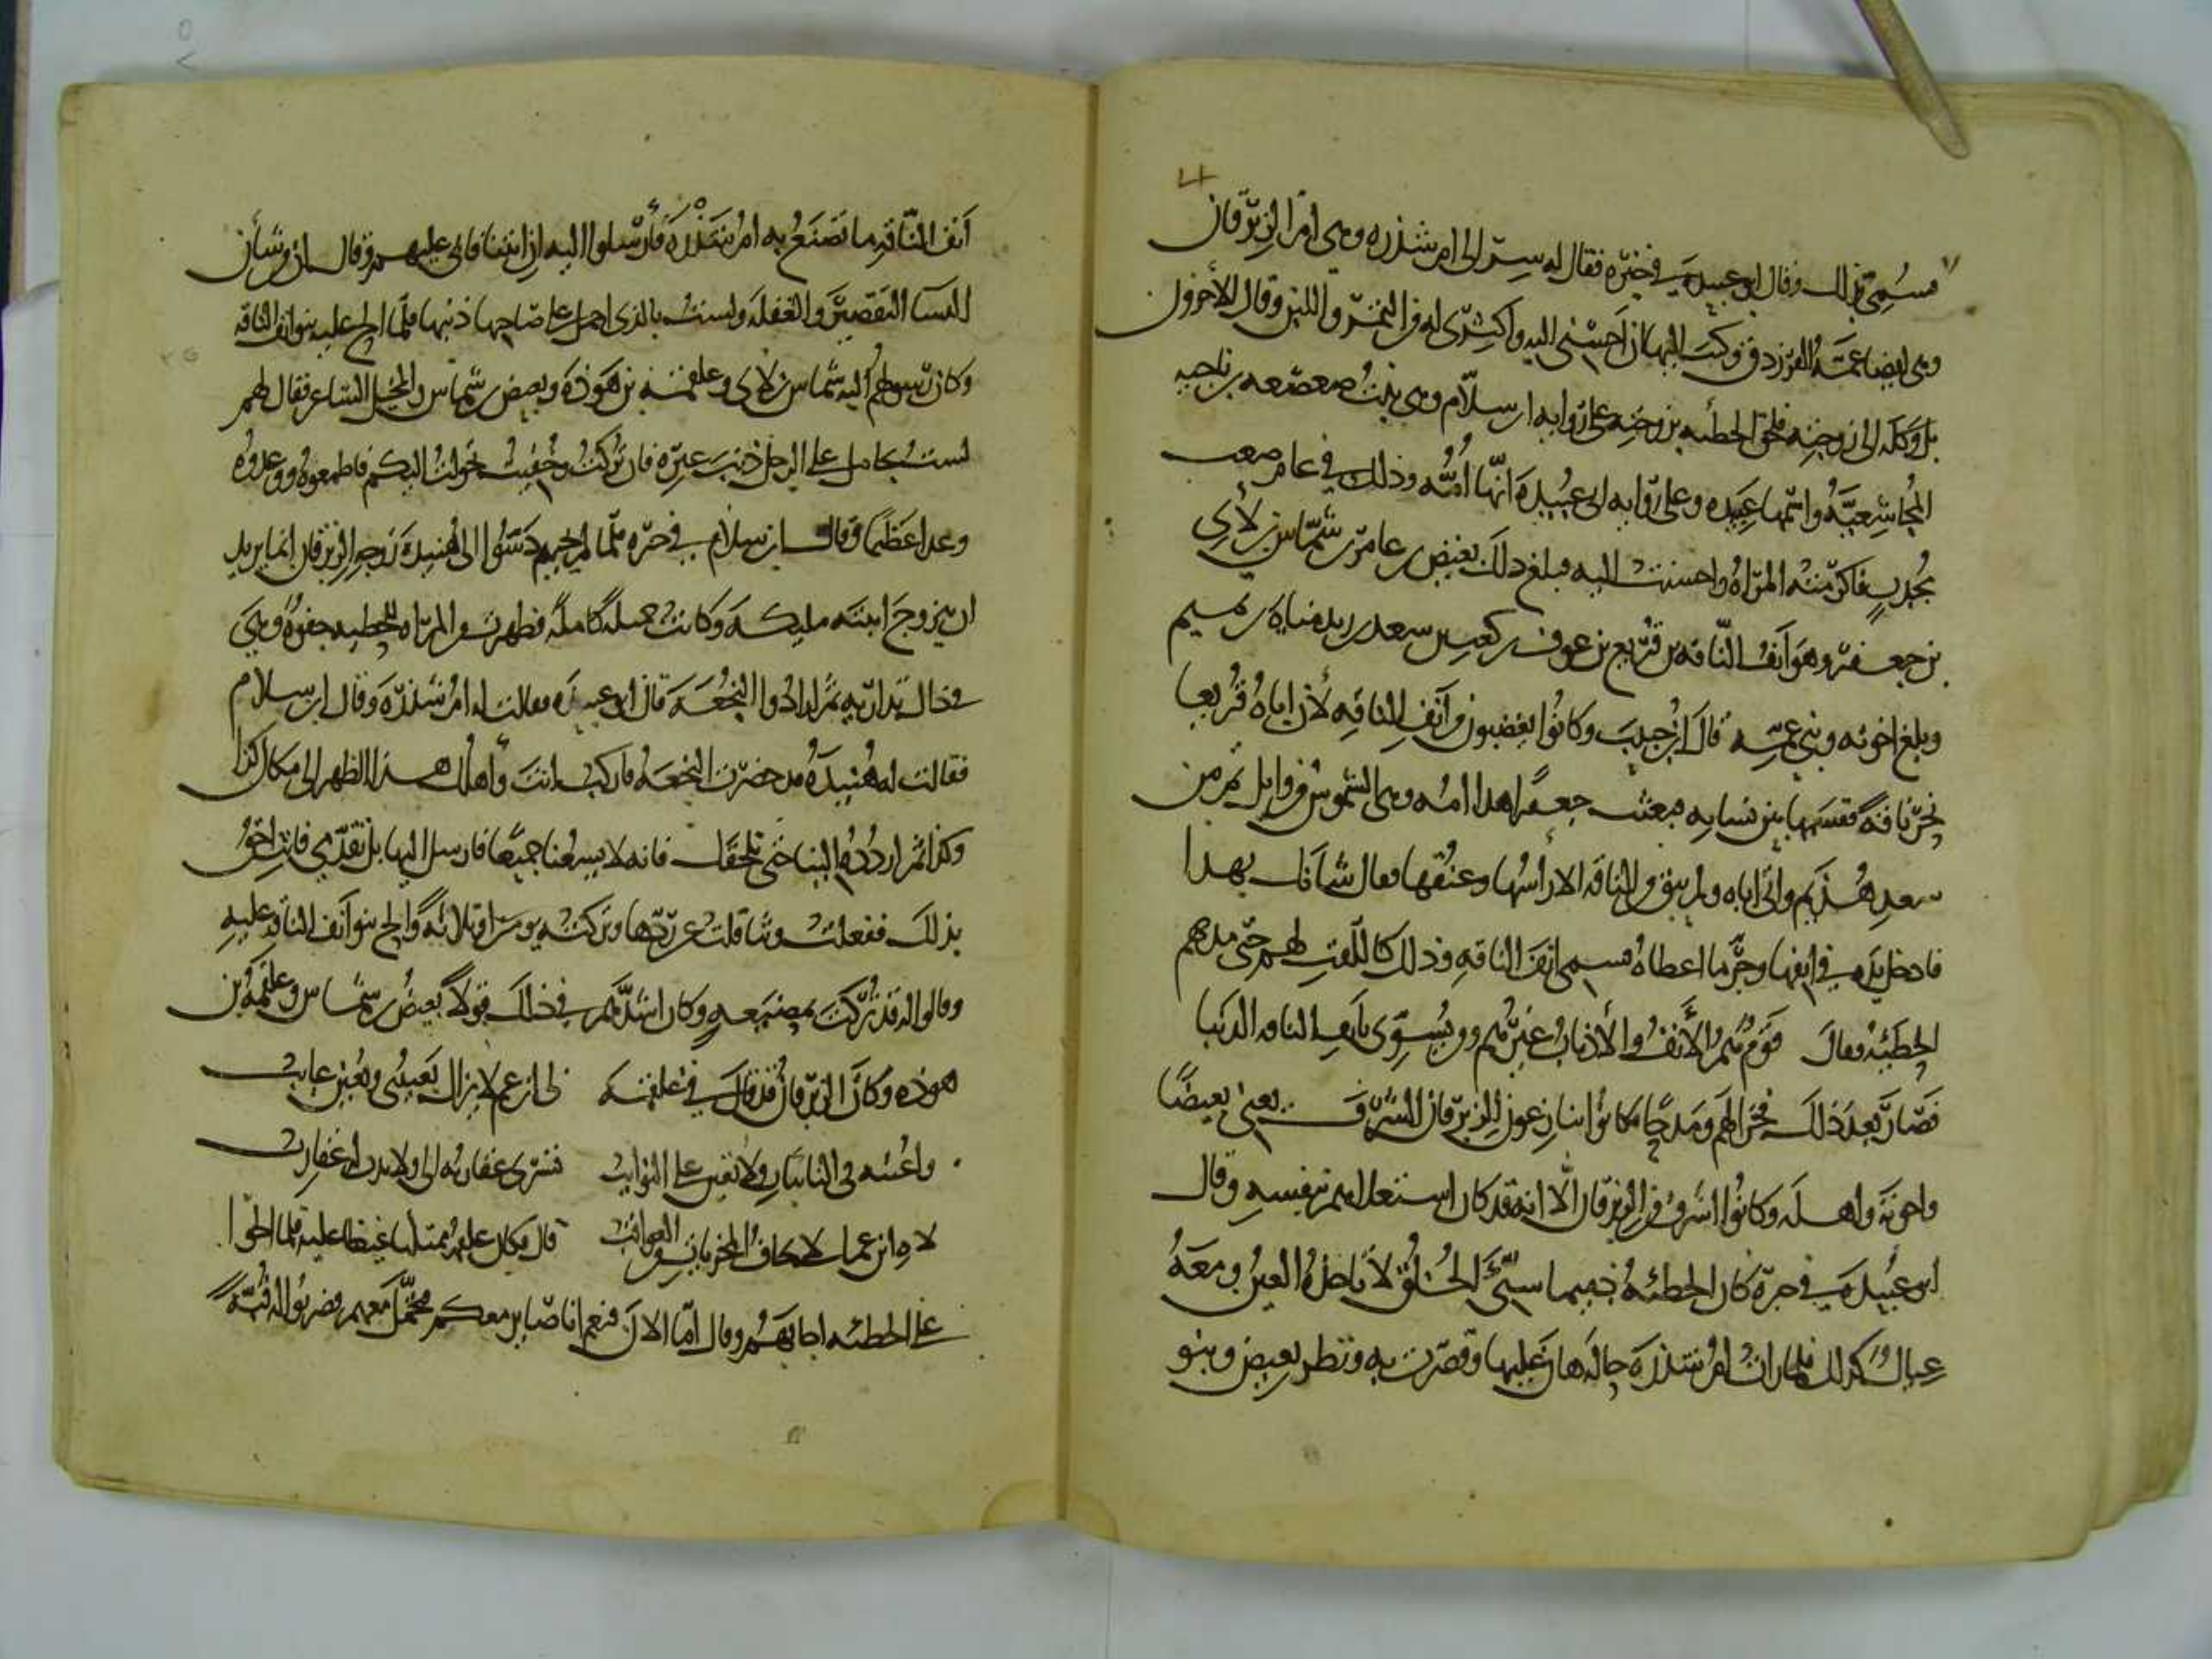 فسُمي بذلك وقال ابو عبيده في خبره فقال له سر الى ام شذره وهي ام الزبرقان
وهي ايضا عمة الفرزدق وكتب اليها ان احسني اليه واكثري له من التمر واللبن وقال الآخرون
بل وكله الى زوجته فلحق الحطيه بزوجته على روايه ابن سلام وهي بنت صعصعه بن ناجيه
المجاشعيّة واسمها هنيده وعلى روايه ابى عبيده انها امه وذلك في عام صعب
مجدب فاكرمته المراه واحسنت اليه فبلغ ذلك بغيض بن عامر بن شماس بن لأى
بن جعفر وهو انف الناقه بن قريع بن عوف بن كعب بن سعد بن زيد مناه بن تميم
وبلغ اخوته وبني عمه قال ابن حبيب وكانوا يغضبون من انف الناقه لأن اباه قريعا
نحر ناقة فقسمها بين نسايه فبعثت جعفرا هذا امه وهي الشموس من وايل ثم من
سعد هذيم واتى اباه ولم يبق من الناقه الا راسها وعنقها فقال شأنك بهذا
فادخل يده في انفها وجر ما اعطاه فسمي انف الناقه وذلك كاللقب لهم حتى مدحهم
الحطيئه فقال قوم هم الأنف والأذناب غيرهم ومن يسوي بانف الناقه الذنبا
فصار بعد ذلك فخرا لهم ومدحا فكانوا ينازعون الزبرقان الشرف يعني بغيضا
واخوته واهله وكانوا اشرف من الزبرقان الا انه قد كان استعلاهم بنفسه وقال
ابو عبيده في خبره كان الحطئه ذميما سيئ الخلق لا تاخذه العين ومعه
عيال كذلك فلما رات ام شذره حاله هان عليها وقصرت به ونظر بغيض وبنو
انف الناقه ما تصنع به ام شذره فأرسلوا اليه ان ايتنا فابى عليهم وقال ان من شأن
النسا التقصير والغفله ولست بالذي احمل على صاحبها ذنبها فلما الح عليه بنو انف الناقه
وكان رسولهم اليه شماس بن لأي وعلقمه بن هوذه وبغيض بن شماس والمخبل الشاعر فقال لهم
لست بحامل على الرجل ذنب غيره فان تركت وجفيت تحولت اليكم فاطمعوه ووعدوه
وعدا عظيما وقال ابن سلام في خبره فلما لم يجبهم دسوا الى هنيده زوجه الزبرقان انما يريد
ان يتزوج ابنته مليكه وكانت جميله كامله فظهر من المراه للحطيه جفوه وهي
في ذاك تداريه ثم ارادوا النجعه قال ابو عبيده فقالت له ام شذره وقال ابن سلام
فقالت له هنيده قد حضرت النجعه فاركب انت واهلك هذا الظهر الى مكان كذا
وكذا ثم اردده الينا حتى نلحقك فانه لا يسعنا جميعا فارسل اليها بل تقدمي فانت احق
بذلك ففعلت وتثاقلت عن ردها وتركته يومين او ثلاثه والح بنو انف الناقه عليه
وقالوا له قد تركت بمضيعه وكان اشدهم في ذلك قولا بغيض بن شماس وعلقمه بن
هوذه وكان الزبرقان قد قال في علقمه لى ابن عم لا يزال يعيبني ويعين عايب
واعينه في النايبات ولا يعين على النوايب تسري عقاربه الي ولا تدب له عقارب
لاه ابن عمك لا تخاف المخزيات من العواقب قال فكان علقمه ممتليا غيظا عليه فلما الحوا
على الحطئه اجابهم وقال اما الان فنعم انا صاير معكم فتحمل معهم فضربوا له قبه